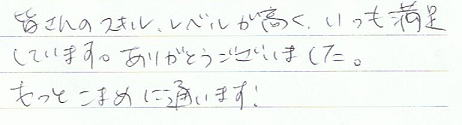 皆さんのスキル、レベルが高く、いつも満足
しています。ありがとうございました。
もっとこまめに通います!